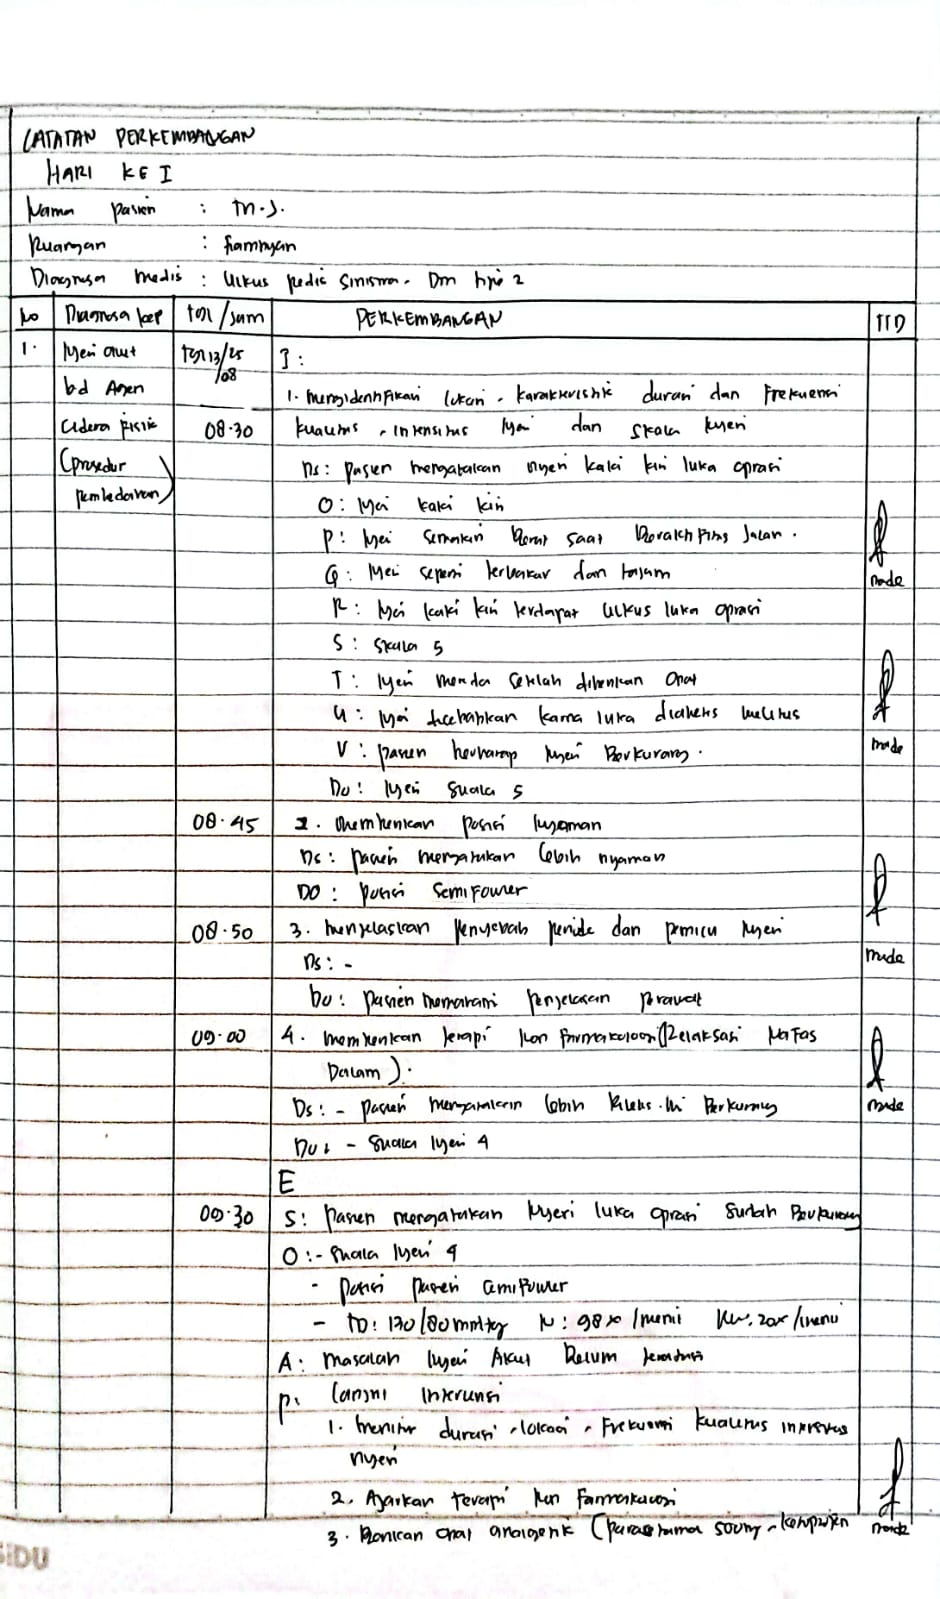 CATATAN PERKEMBANGAN
HARI KE I
Nama pasien : Tn.S.
Ruangan : 
Diagnosa medis : Ulkus pedis sinistra. Dm tipe 2
No Diagnosa kep tgl/Jam PERKEMBANGAN TTD
1. Nyeri akut tgl 13/25 I :
bd Agen /08 1. mengidentifikasi lokasi, karakteristik durasi dan Frekuensi
cidera fisik 08.30 kualitas, intensitas nyeri dan skala nyeri
(prosedur Ds: pasien mengatakan nyeri kaki kiri luka oprasi
pembedahan) O: Nyeri kaki kiri
P: Nyeri semakin berat saat beraktifitas Jalan.
Q: Nyeri seperti terbakar dan tajam made
R: Nyeri kaki kiri terdapat ulkus luka oprasi
S: Skala 5
T: Nyeri mereda setelah diberikan obat
U: Nyeri disebabkan karna luka diabetes melitus
V: pasien berharap Nyeri Berkurang. made
Do: Nyeri skala 5
08.45 2. memberikan posisi nyaman
Ds: pasien mengatakan lebih nyaman
DO: posisi SemiFowler
08.50 3. menjelaskan penyebab periode dan pemicu nyeri
Ds: - made
Do: pasien memahami penjelasan perawat
09.00 4. memberikan terapi Non farmakologi (Relaksasi Nafas
Dalam).
Ds: - pasien mengatakan lebih rileks. Berkurang made
Do: - Skala Nyeri 4
E
09.30 S: Pasien mengatakan Nyeri luka oprasi sudah Berkurang
O: - Skala Nyeri 4
- posisi pasien semiFowler
- TD: 130/80mmHg N: 98x/menit RR: 20x/menit
A: masalah Nyeri Akut Belum teratasi
P: Lanjut Intervensi
1. monitor durasi, lokasi, Frekuensi kualitas intensitas
nyeri
2. Ajarkan terapi Non Farmakologi
3. Berikan obat analgetik made
SiDU